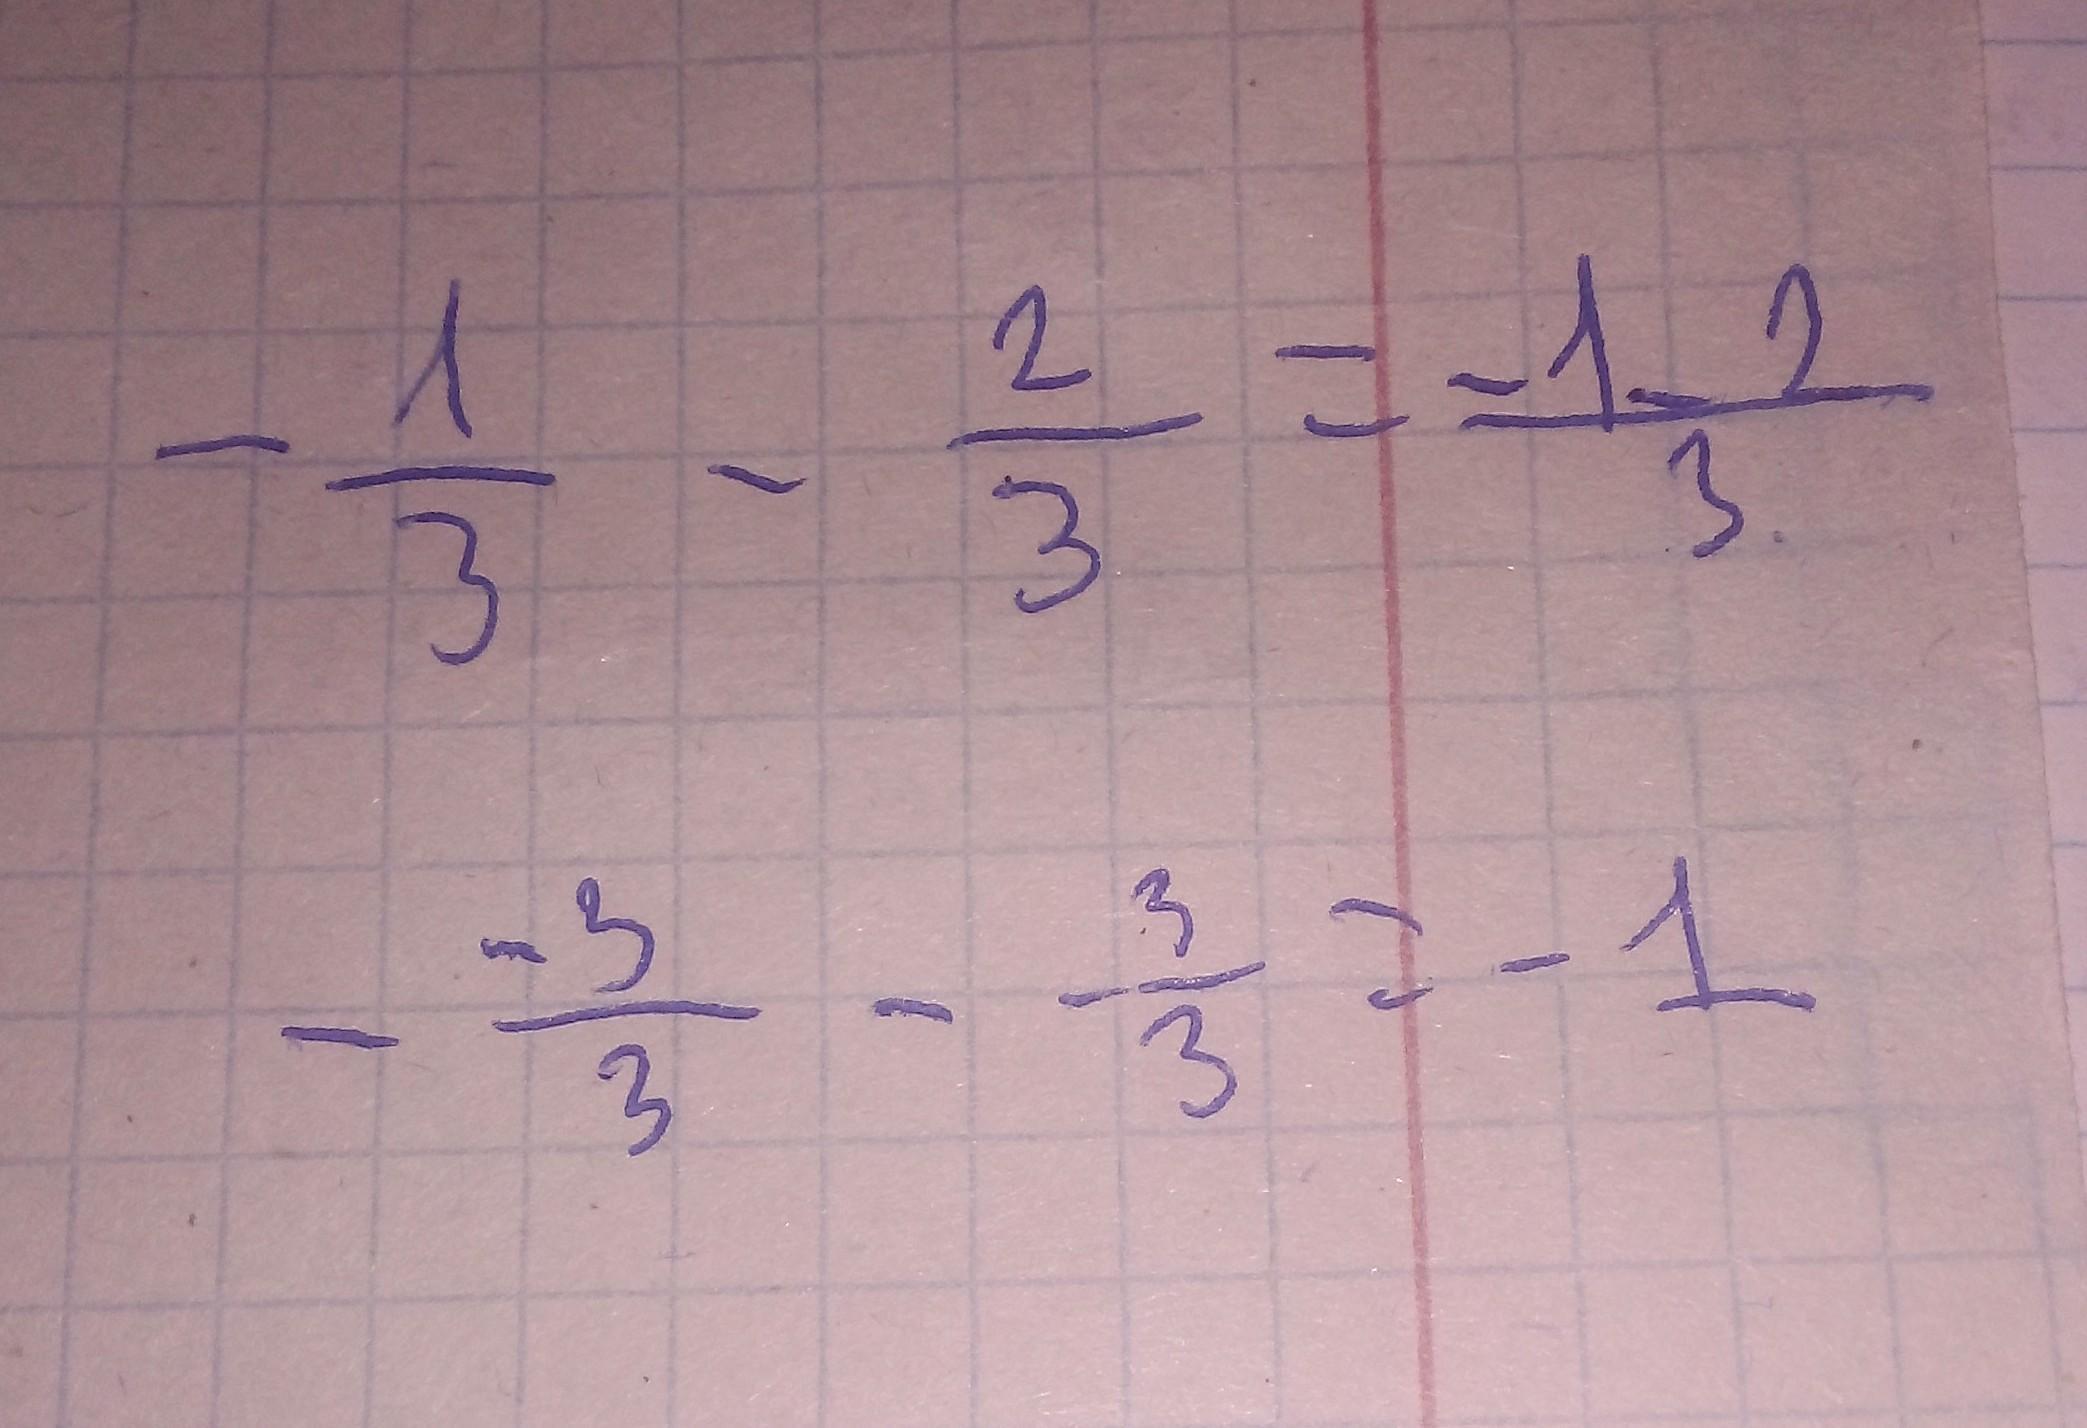 - 1/3 - 2/3 = -1-2/3
- -3/3 - -3/3 = -1